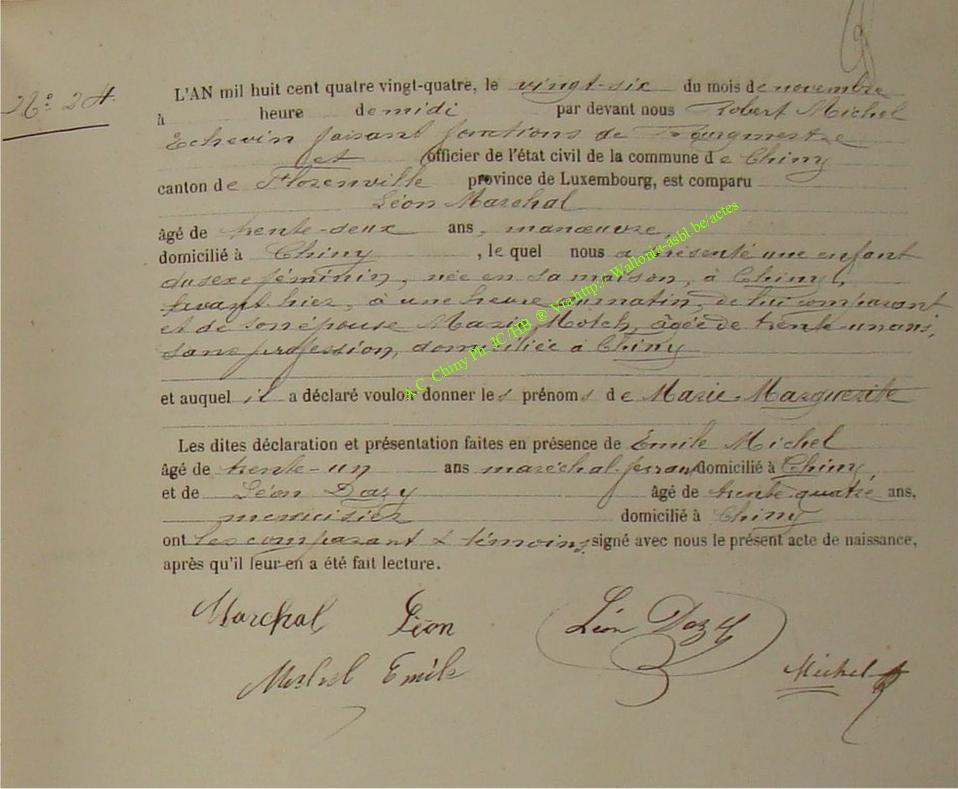 N° 24.
L'AN mil huit cent quatre vingt-quatre, le vingt-six du mois de novembre
à heure de midi par devant nous Robert Michel
Echevin faisant fonctions de Bourgmestre
et officier de l'état civil de la commune de Chiny
canton de Florenville province de Luxembourg, est comparu
Léon Marchal
âgé de trente-deux ans, manœuvre,
domicilié à Chiny, le quel nous a présenté une enfant
du sexe féminin, née en sa maison, à Chiny,
avant hier, à une heure du matin, de lui comparant
et de son épouse Marie Motch, âgée de trente-un ans,
sans profession, domiciliée à Chiny
et auquel il a déclaré vouloir donner les prénoms de Marie-Marguerite
Les dites déclaration et présentation faites en présence de Emile Michel
âgé de trente-un ans maréchal-ferrant domicilié à Chiny,
et de Léon Dazy âgé de trente-quatre ans,
menuisier domicilié à Chiny
ont les comparant & témoins, signé avec nous le présent acte de naissance,
après qu'il leur en a été fait lecture.
Marchal Léon
Léon Dazy
Michel Emile
Michel
A.C. Chiny Ph JC HB ® Via http://Wallonia-asbl.be/actes